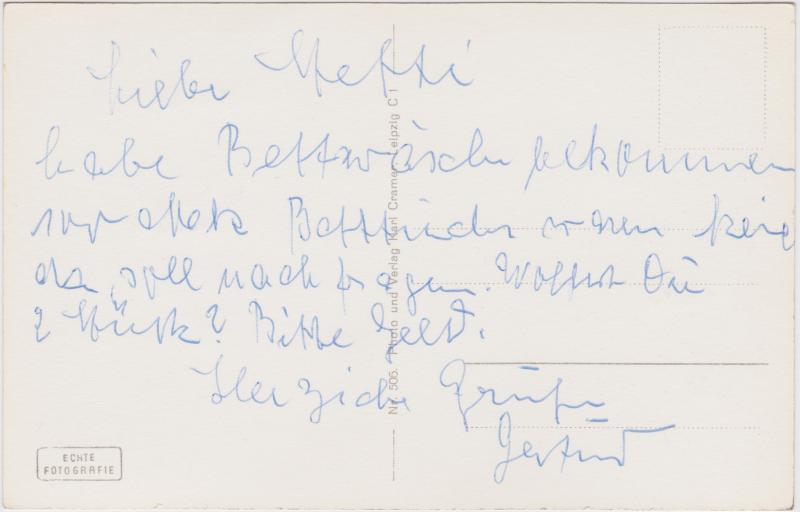 Liebe Steffi
habe Bettwäsche bekommen
Betttücher waren keine
da, soll nachfragen. Wolltest Du
2 Stück? Bitte Geld.
Herzliche Grüße
Gertrud
Nr. 506. Photo und Verlag Karl Cramer, Leipzig C 1
ECHTE
FOTOGRAFIE